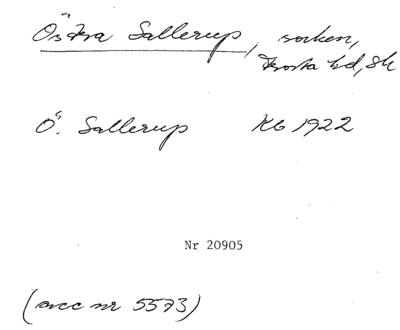 Östra Sallerup, socken,
Frosta hd, Sk
Ö. Sallerup KG 1922
Nr 20905
(acc nr 5573)